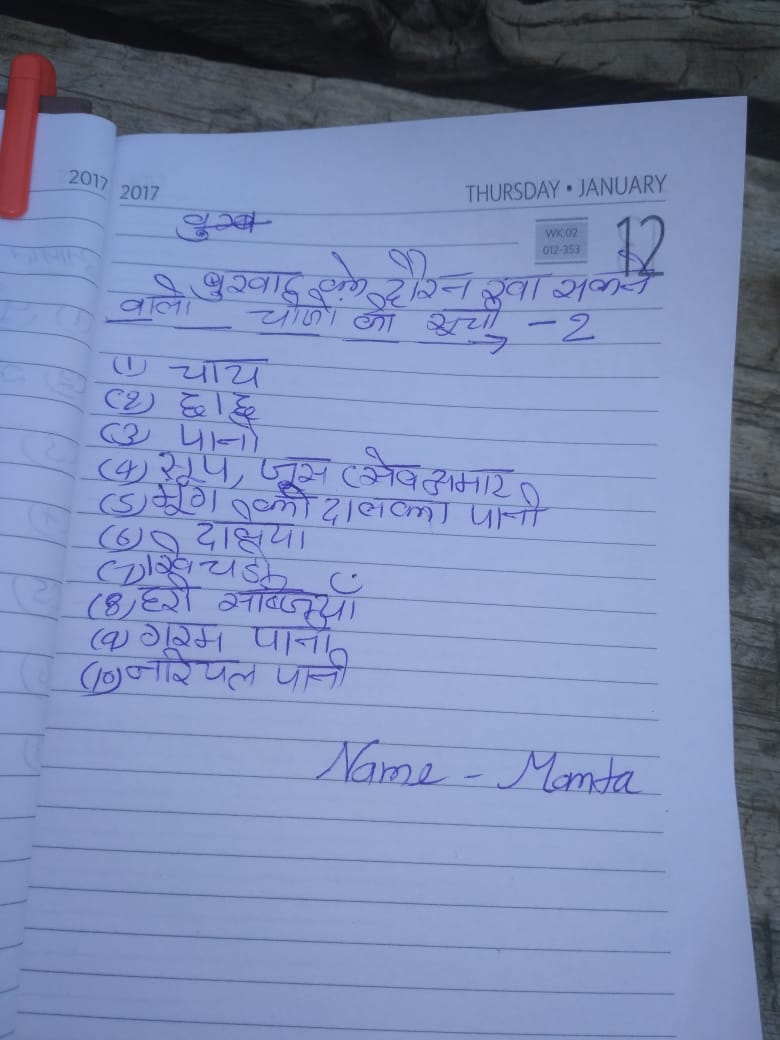 2017 2017 THURSDAY • JANUARY
WK 02
012-353
12
बुखा
बुखाद के दौरन खा सकने
वाली चीजो की सूची - 2
(1) चाय
(2) छाछ
(3) पानी
(4) सूप, जूस (सेव अनार
(5) मूंग की दाल का पानी
(6) दलिया
(7) खिचडी
(8) हरी सब्जियाँ
(9) गरम पानी
(10) नारियल पानी
Name - Mamta